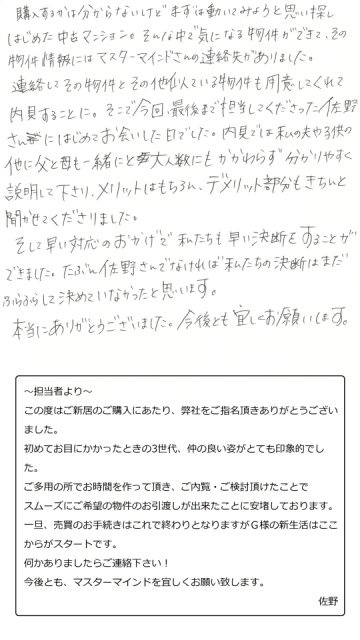 購入するかは分からないけどまずは動いてみようと思い探し
はじめた中古マンション。そんな中で気になる物件がでてきて、その
物件情報にはマスターマインドさんの連絡先がありました。
連絡してその物件とその他似ている物件も用意してくれて
内見することに。そこで今回、最後まで担当してくださった佐野
さんにはじめてお会いした日でした。内見では私の夫や子供の
他に父と母も一緒にと大人数にもかかわらず分かりやすく
説明して下さり、メリットはもちろん、デメリット部分もきちんと
聞かせてくださりました。
そして早い対応のおかげで私たちも早い決断をすることが
できました。たぶん佐野さんでなければ私たちの決断はまだ
ぶらぶらして決めていなかったと思います。
本当にありがとうございました。今後とも宜しくお願いします。
～担当者より～
この度はご新居のご購入にあたり、弊社をご指名頂きありがとうござい
ました。
初めてお目にかかったときの3世代、仲の良い姿がとても印象的でし
た。
ご多用の所でお時間を作って頂き、ご内覧・ご検討頂けたことで
スムーズにご希望の物件のお引渡しが出来たことに安堵しております。
一旦、売買のお手続きはこれで終わりとなりますがG様の新生活はここ
からがスタートです。
何かありましたらご連絡下さい！
今後とも、マスターマインドを宜しくお願い致します。
佐野